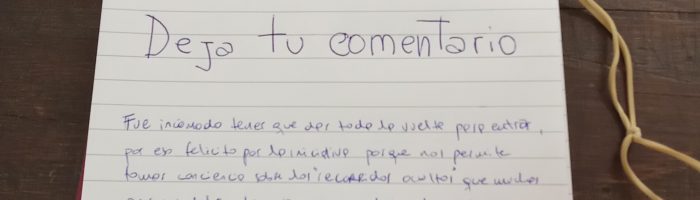 Deja tu comentario
Fue incómodo tener que dar toda la vuelta para entrar,
por eso felicito por la iniciativa porque nos permite
tomar conciencia sobre los "recorridos ocultos" que muchas